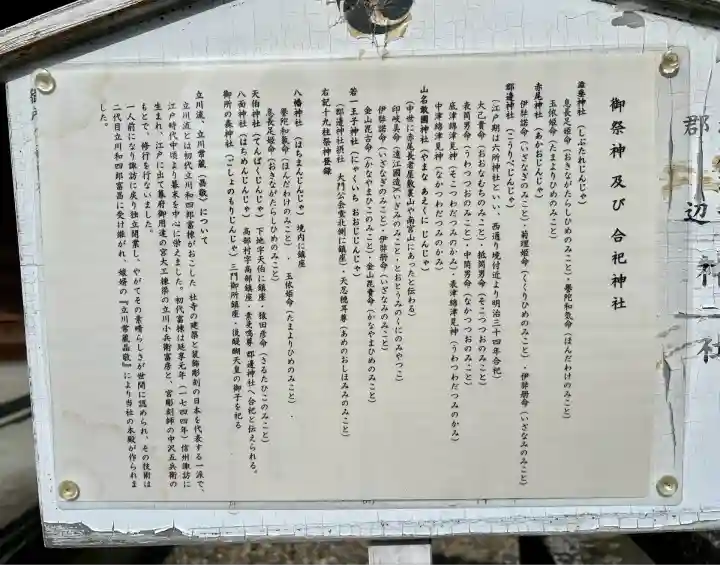 御祭神 及び 合祀神社
澁垂神社(しぶたれじんじゃ)
息長足姫命(おきながたらしひめのみこと)・誉陀和気命(ほんだわけのみこと)
玉依姫命(たまよりひめのみこと)
赤尾神社(あかおじんじゃ)
伊弉諾命(いざなぎのみこと)・菊理姫命(くくりひめのみこと)・伊弉冊命(いざなみのみこと)
郡邊神社(こうりべじんじゃ)
(江戸期は六所神社といい、西通り境付近より明治三十四年合祀)
大己貴命(おおなむちのみこと)・底筒男命(そこつつおのみこと)
表筒男命(うわつつおのみこと)・中筒男命(なかつつおのみこと)
底津綿津見神(そこつわだつみのかみ)・表津綿津見神(うわつわだつみのかみ)
中津綿津見神(なかつわだつみのかみ)
山名敢國神社(やまな あえくに じんじゃ)
(中世に赤尾長者屋敷裏山や南宮山にあったと伝わる)
印岐美命(遠江國造)(いぎみのみこと・とおとうみのくにのみやつこ)
伊弉諾命(いざなぎのみこと)・伊弉冊命(いざなみのみこと)
金山毘古命(かなやまひこのみこと)・金山毘賣命(かなやまひめのみこと)
若一王子神社(にゃくいち おおじじんじゃ)
(郡邊神社摂社 大門公会堂北側に鎮座)・天忍穂耳尊(あめのおしほみみのみこと)
右記十九柱祭神登録
八幡神社(はちまんじんじゃ)境内に鎮座
誉陀和氣命(ほんだわけのみこと)・玉依姫命(たまよりひめのみこと)・
息長足姫命(おきながたらしひめのみこと)
天伯神社(てんぱくじんじゃ)下地字天伯に鎮座・猿田彦命(さるたひこのみこと)
八面神社(はちめんじんじゃ)高部村字高部鎮座・素戔嗚尊 郡邊神社へ合祀と伝えられる。
御所の森神社(ごしょのもりじんじゃ)三門御所鎮座・後醍醐天皇の御子を祀る
立川流、立川常蔵(昌敬)について
立川流とは初代立川和四郎富棟がおこした 社寺の建築と装飾彫刻の日本を代表する一派で、
江戸時代中頃より幕末を中心に栄えました。初代富棟は延享元年(一七四四年)信州諏訪に
生まれ、江戸に出て幕府御用達の宮大工棟梁の立川小兵衛富房と、宮彫刻師の中沢五兵衛の
もとで、修行を行ないました。
一人前になり諏訪に戻り独立開業し、やがてその素晴らしさが世間に認められ、その技術は
二代目立川和四郎富昌に受け継がれ、娘婿の『立川常蔵昌敬』により当社の本殿が作られま
した。
郡邊神社